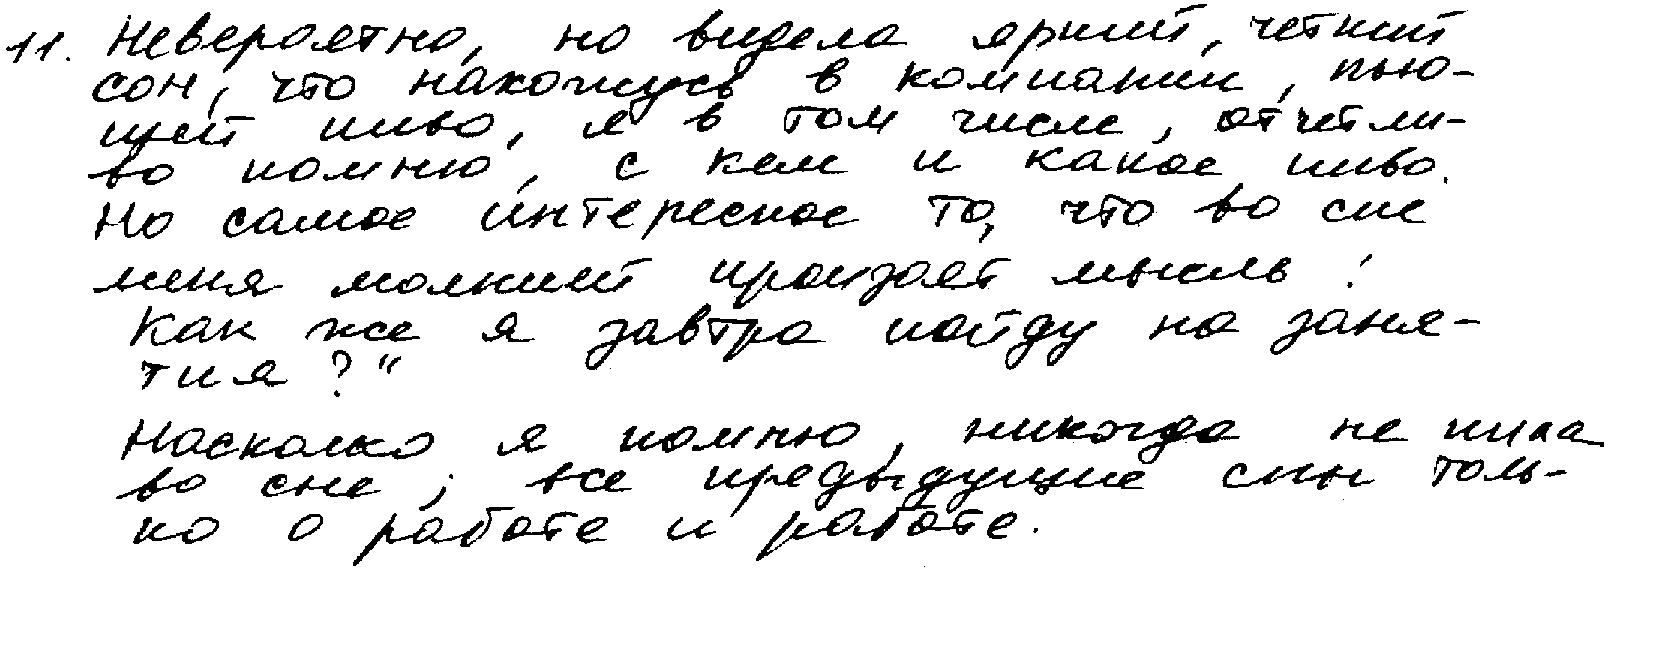 11. Невероятно, но видела яркий, четкий
сон, что нахожусь в компании, пью-
щей пиво, я в том числе, отчетли-
во помню, с кем и какое пиво.
Но самое интересное то, что во сне
меня молнией пронзает мысль!
Как же я завтра пойду на заня-
тия?"
Насколко я помню, никогда не пила
во сне; все предыдущие сны толь-
ко о работе и работе.